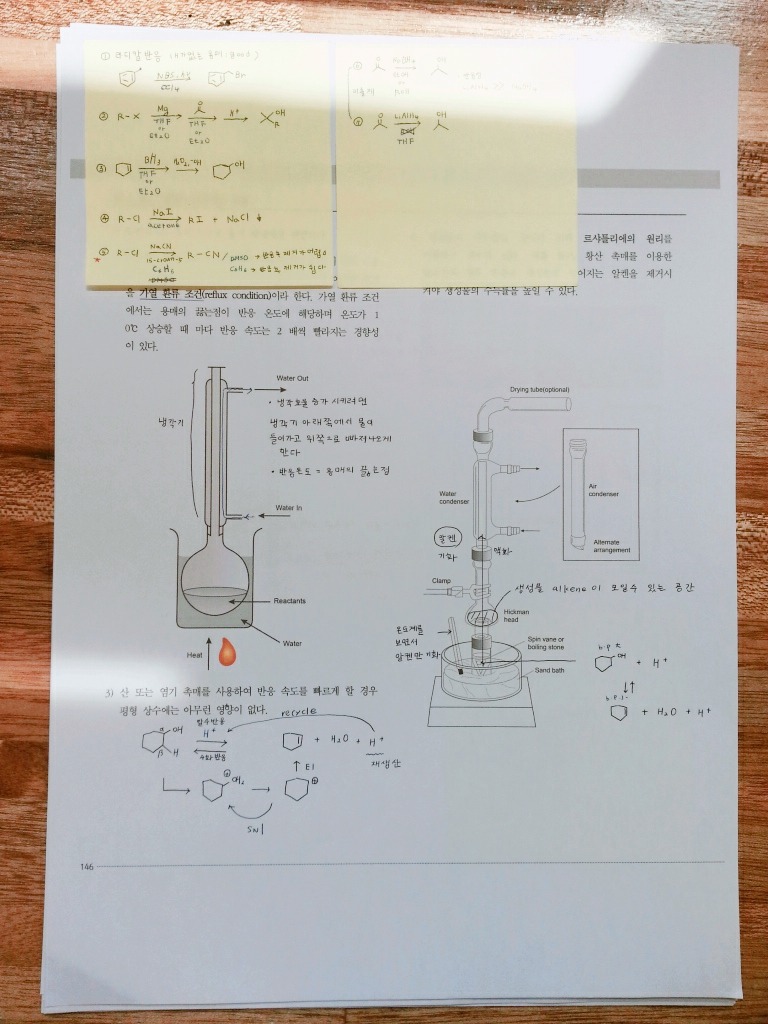 ① 라디칼 반응
NBS, hν
Br
CCl4
② R-X
Mg
THF
or
Et2O
O
THF
or
Et2O
H+
OH
R
③
BH3
THF
or
Et2O
H2O2, -OH
OH
④ R-Cl
NaI
acetone
RI + NaCl ↓
⑤ R-Cl
NaCN
15-crown-5
C6H6
R-CN
DMSO → 반응후 제거가 어렵다
C6H6 → 반응후 제거가 쉽다
O
OH
LiAlH4
THF
르샤틀리에의 원리를
황산 촉매를 이용한
어지는 알켄을 제거시
켜야 생성물의 수득률을 높일 수 있다.
을 가열 환류 조건(reflux condition)이라 한다. 가열 환류 조건
에서는 용매의 끓는점이 반응 온도에 해당하며 온도가 1
0℃ 상승할 때 마다 반응 속도는 2 배씩 빨라지는 경향성
이 있다.
Water Out
냉각기
• 냉각효율 증가 시키려면
냉각기 아래쪽에서 물이
들어가고 위쪽으로 빠져나오게
한다
• 반응온도 = 용매의 끓는점
Water In
Reactants
Water
Heat
Drying tube(optional)
Water
condenser
Air
condenser
Alternate
arrangement
알켄
기화
액화
Clamp
생성물 alkene이 모일수 있는 공간
Hickman
head
온도계를
보면서
알켄만 기화
Spin vane or
boiling stone
Sand bath
b.p ↑
OH
+ H+
b.p ↓
+ H2O + H+
3) 산 또는 염기 촉매를 사용하여 반응 속도를 빠르게 할 경우
평형 상수에는 아무런 영향이 없다.
recycle
α
OH
β
H
탈수반응
H+
수화반응
+ H2O + H+
재생산
↑ E1
⊕
OH2
⊕
SN1
146